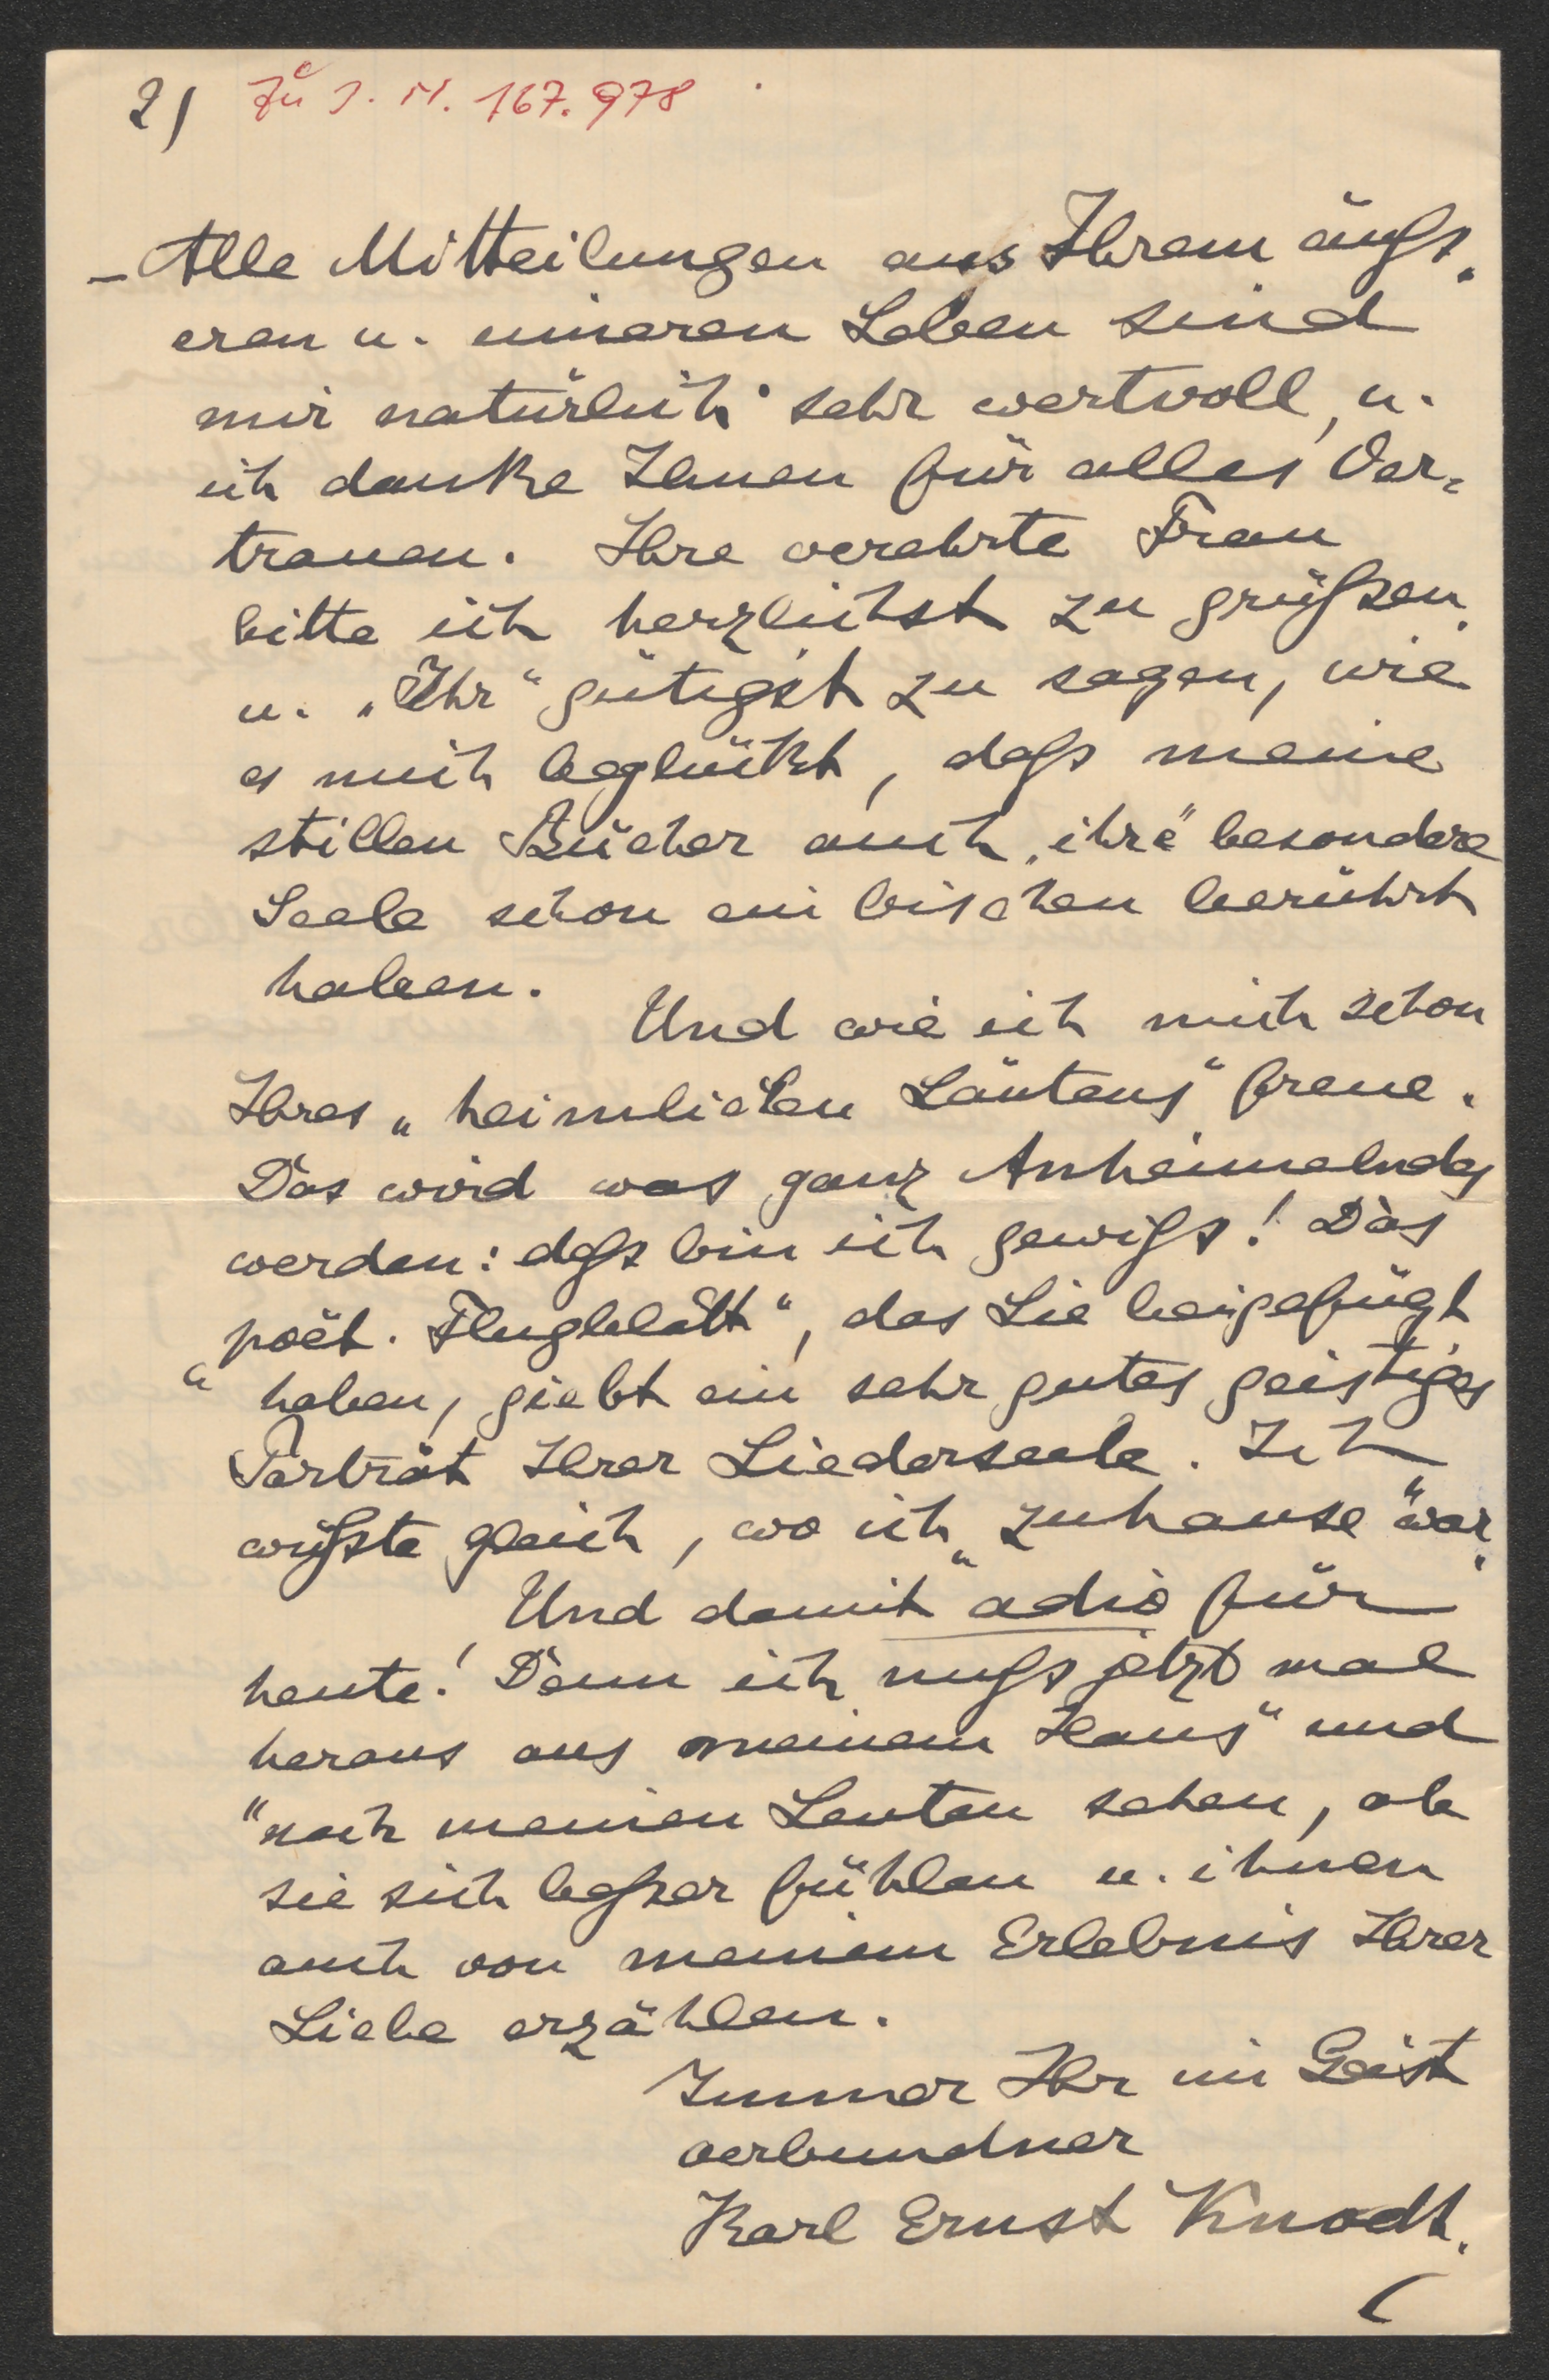 2) Zu I. N. 167.978
- Alle Mitteilungen aus Ihrem äuß-
eren u. inneren Leben sind
mir natürlich sehr wertvoll, u.
ich danke Ihnen für alles Ver-
trauen. Ihre verehrte Frau
bitte ich herzlichst zu grüßen
u. „Ihr“ gütigst zu sagen, wie
es mich beglückt, daß meine
stillen Bücher auch „ihre“ besondere
Seele schon ein bischen berührt
haben.
Und wie ich mich schon
Ihres „heimlichen Läutens“ freue.
Das wird was ganz Anheimelndes
werden: deß bin ich gewiß! Das
„poët. Flugblatt“, das Sie beigefügt
haben, giebt ein sehr gutes geistiges
Porträt Ihrer Liederseele. Ich
wußte gleich, wo ich „zuhause“ war.
Und damit adio für
heute! Denn ich muß jetzt mal
heraus aus meinem Haus“ und
"nach meinen Leuten sehen, ob
sie sich beßer fühlen u. ihnen
auch von meinem Erlebnis Ihrer
Liebe erzählen.
Immer Ihr im Geist
verbundner
Karl Ernst Knodt.